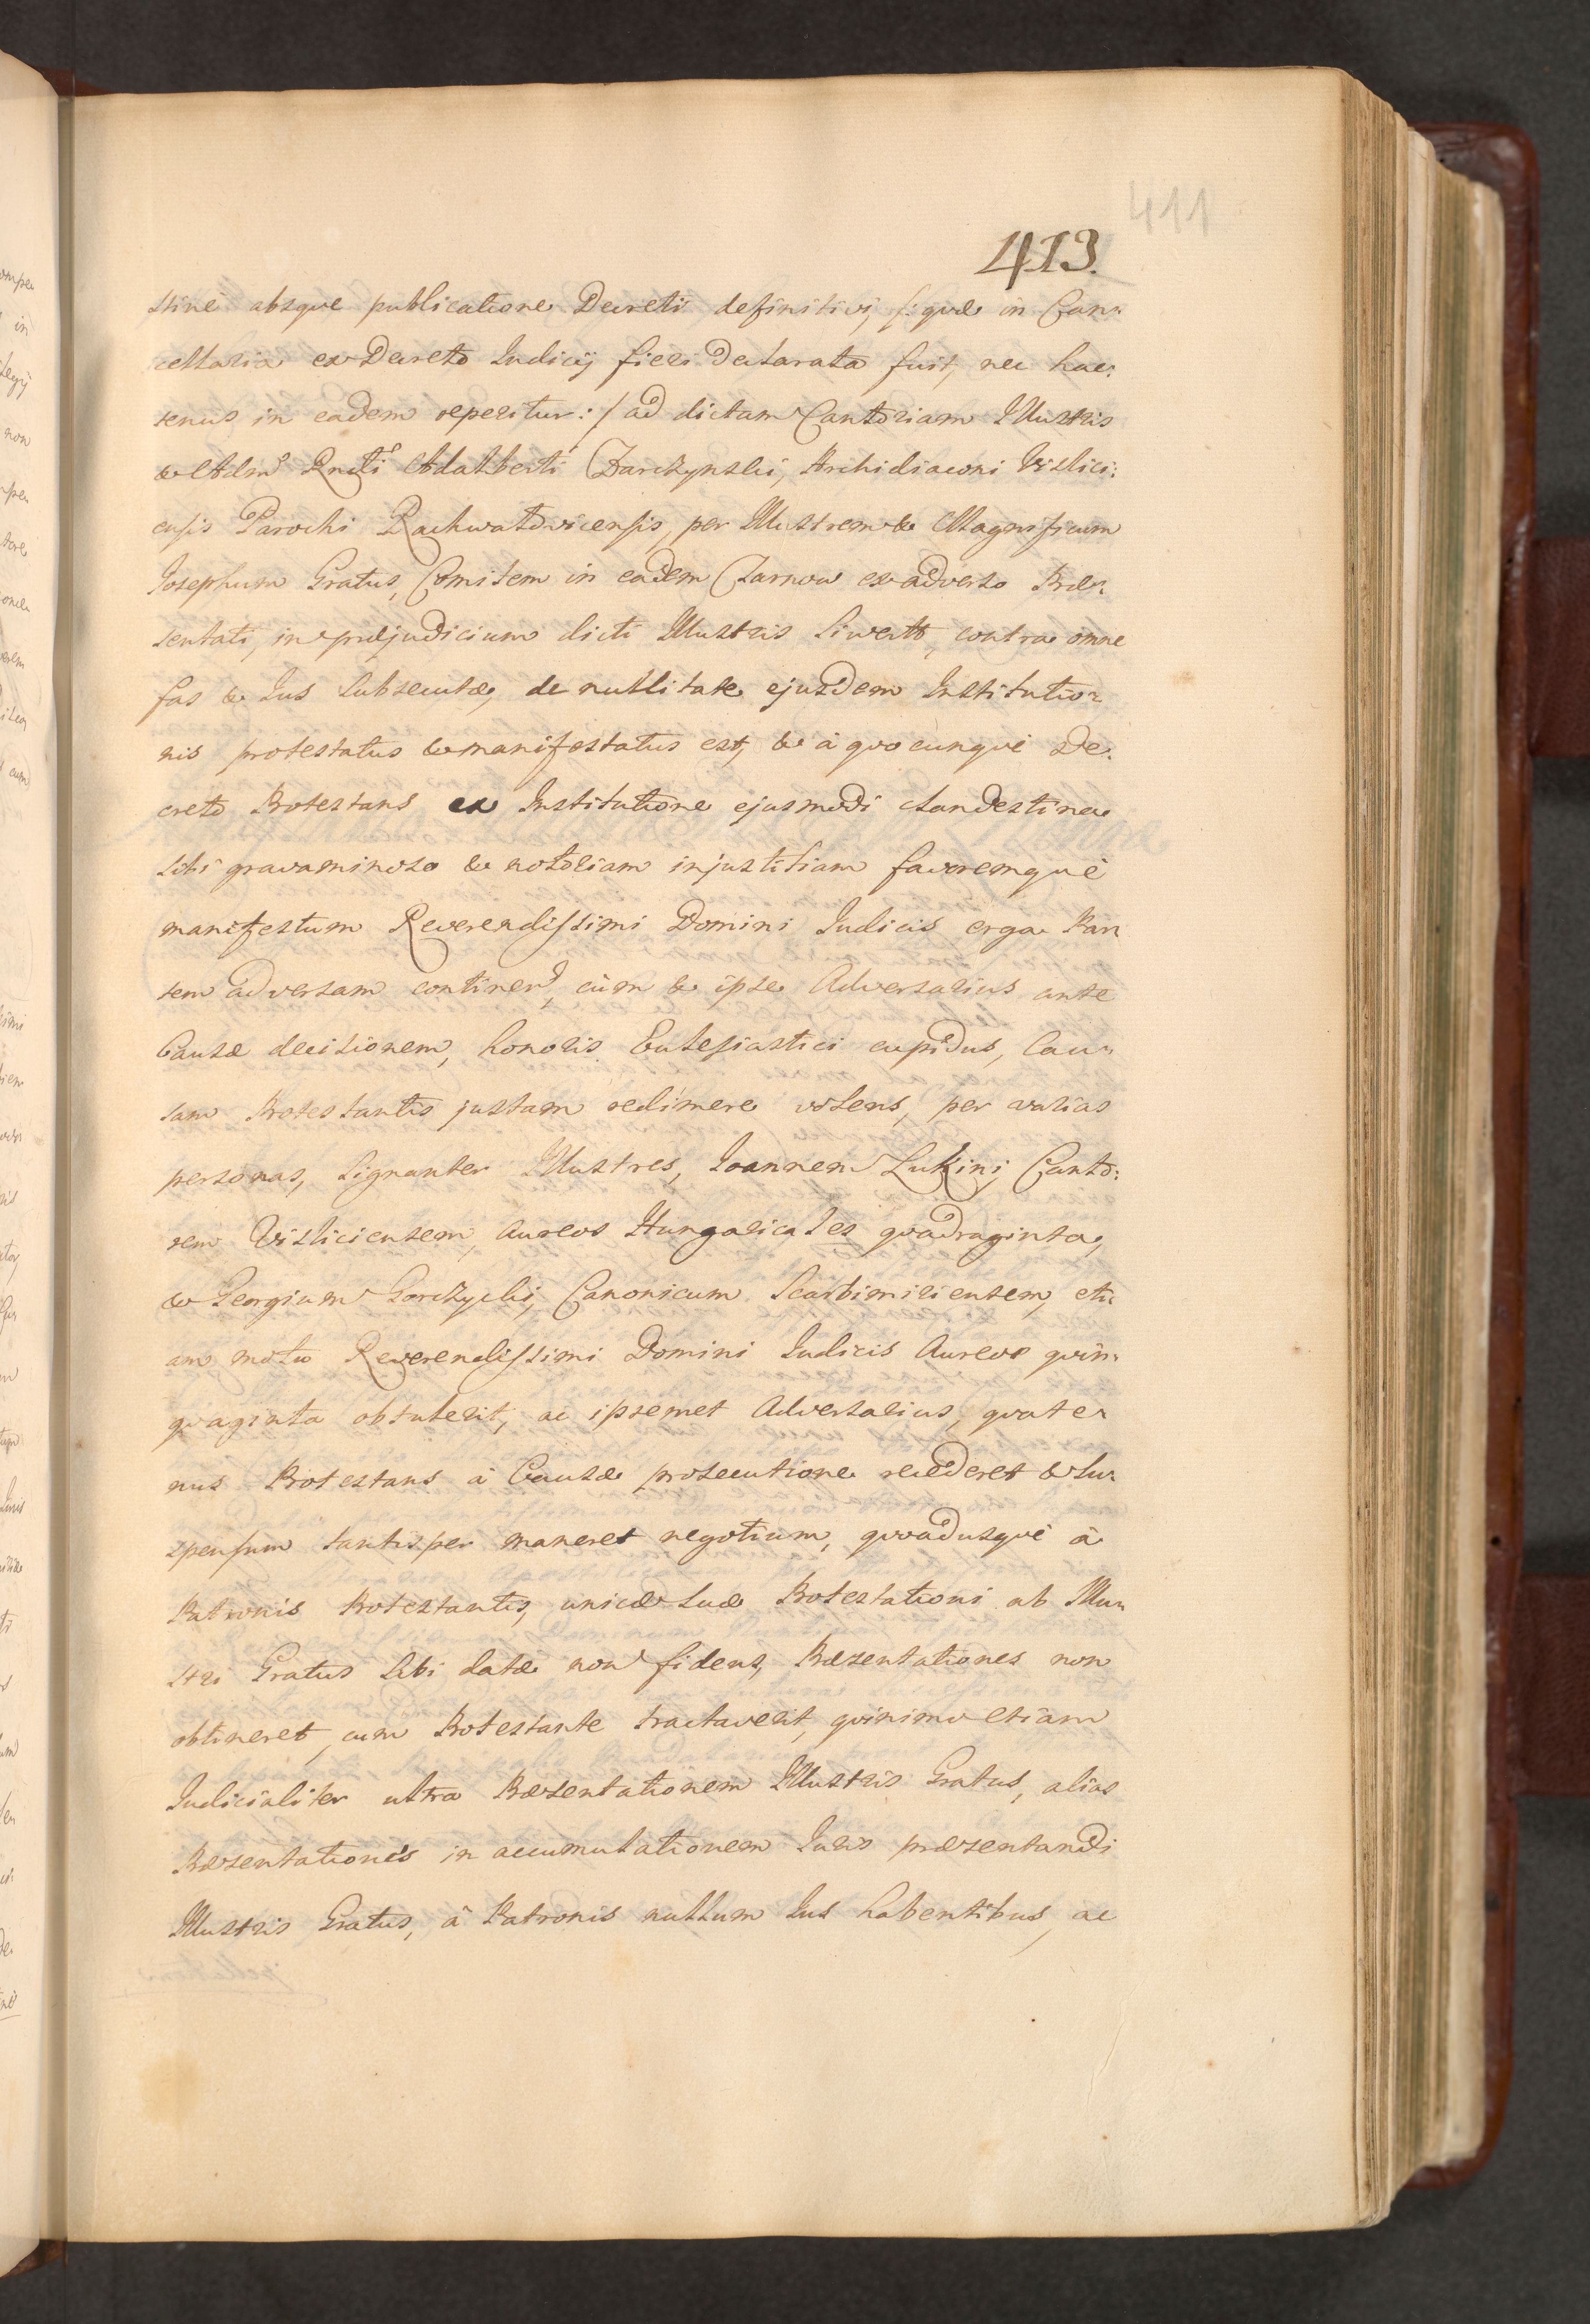 411
413.
stine absque publicatione Decreti definitivi, /: quæ in Can=
cellaria ex Decreto Iudicij fieri declarata fuit, nec hac:
tenus in eadem reperitur :/ ad dictam Cantoriam Illustris
& Admd Rndi Adalberti Darczynski, Archidiaconi Vislici:
ensis Parochi Rachwalovicensis, per Illustrem & Magnificum
Iosephum Gratus, Comitem in eadem Czarnow ex adverso Præ=
sentati, in præjudicium dicti Illustris Siwertt, contra omne
fas & Ius subsecutæ, de nullitate ejusdem Institutio=
nis protestatus & manifestatus est, & à quocunque De:
creto Protestans ex Institutione ejusmodi clandestina
sibi gravaminoso & notoriam injustitiam favoremque
manifestum Reverendissimi Domini Iudicis erga Par=
tem adversam continen, cùm & ipse Adversarius ante
Causæ decisionem, honoris Ecclesiastici cupidus, Cau=
sam Protestantis justam redimere volens, per varias
personas, signanter Illustres, Ioannem Lukini, Canto:
rem Visliciensem, Aureos Hungaricales quadraginta,
& Georgium Gorczycki, Canonicum Scarbimiriensem, eti=
am motu Reverendissimi Domini Iudicis Aureos quin=
quaginta obtulerit, ac ipsemet Adversarius, quate=
nus Protestans à Causæ prosecutione recederet & su=
spensum tantisper maneret negotium, quoadusque à
Patronis Protestantis, unicæ suæ Protestationi ab Illu=
stri Gratus sibi datæ non fidens, Præsentationes non
obtineret, cum Protestante tractaverit, quinimo etiam
Iudicialiter ultra Præsentationem Illustris Gratus, alias
Præsentationes in accumulationem Iuris præsentandi
Illustris Gratus, à Patronis nullum Ius habentibus, ac